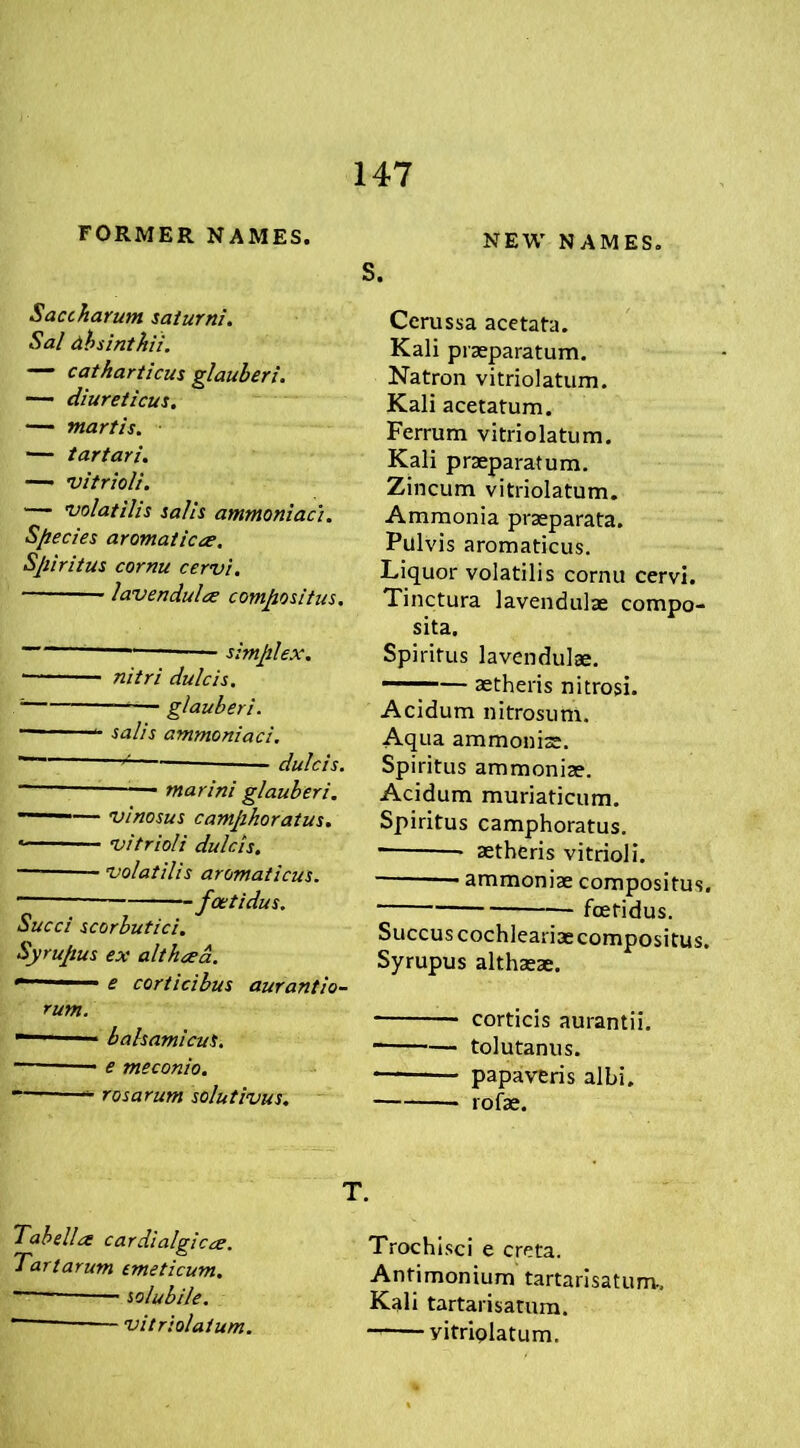 147
FORMER NAMES.
NEW NAMES.
S.
Saccharum saturni.
Sal absinthii.
— catharticus glauberi.
— diureticus.
— martis.
— tartari.
— vitrioli.
— volatilis salis ammoniaci.
Species aromaticæ.
Spiritus cornu cervi.
——— lavendulæ compositus.
——— ——— simplex.
——— nitri dulcis.
——— —— glauberi.
——— salis ammoniaci.
——— ——— dulcis.
——— —— marini glauberi.
——— vinosus camphoratus.
——— vitrioli dulcis.
——— volatilis aromaticus.
——— ——— fœtidus.
Succi scorbutici.
Syrupus ex althæâ.
——— e corticibus aurantio-
rum.
——— balsamicus.
——— e meconio.
——— rosarum solutivus.
Cerussa acetata.
Kali præparatum.
Natron vitriolatum.
Kali acetatum.
Ferrum vitriolatum.
Kali præparatum.
Zincum vitriolatum.
Ammonia præparata.
Pulvis aromaticus.
Liquor volatilis cornu cervi.
Tinctura lavendulæ compo-
sita.
Spiritus lavendulæ.
——— ætheris nitrosi.
Acidum nitrosum.
Aqua ammoniæ.
Spiritus ammoniæ.
Acidum muriaticum.
Spiritus camphoratus.
——— ætheris vitrioli.
——— ammoniæ compositus.
——— ——— fœtidus.
Succus cochleariæ compositus.
Syrupus althææ.
——— corticis aurantii.
——— tolutanus.
——— papaveris albi.
——— rofæ.
T.
Tabellæ cardialgicæ.
Tartarum emeticum.
——— solubile.
——— vitriolatum.
Trochisci e creta.
Antimonium tartarisatum.
Kali tartarisatum.
—— vitriolatum.